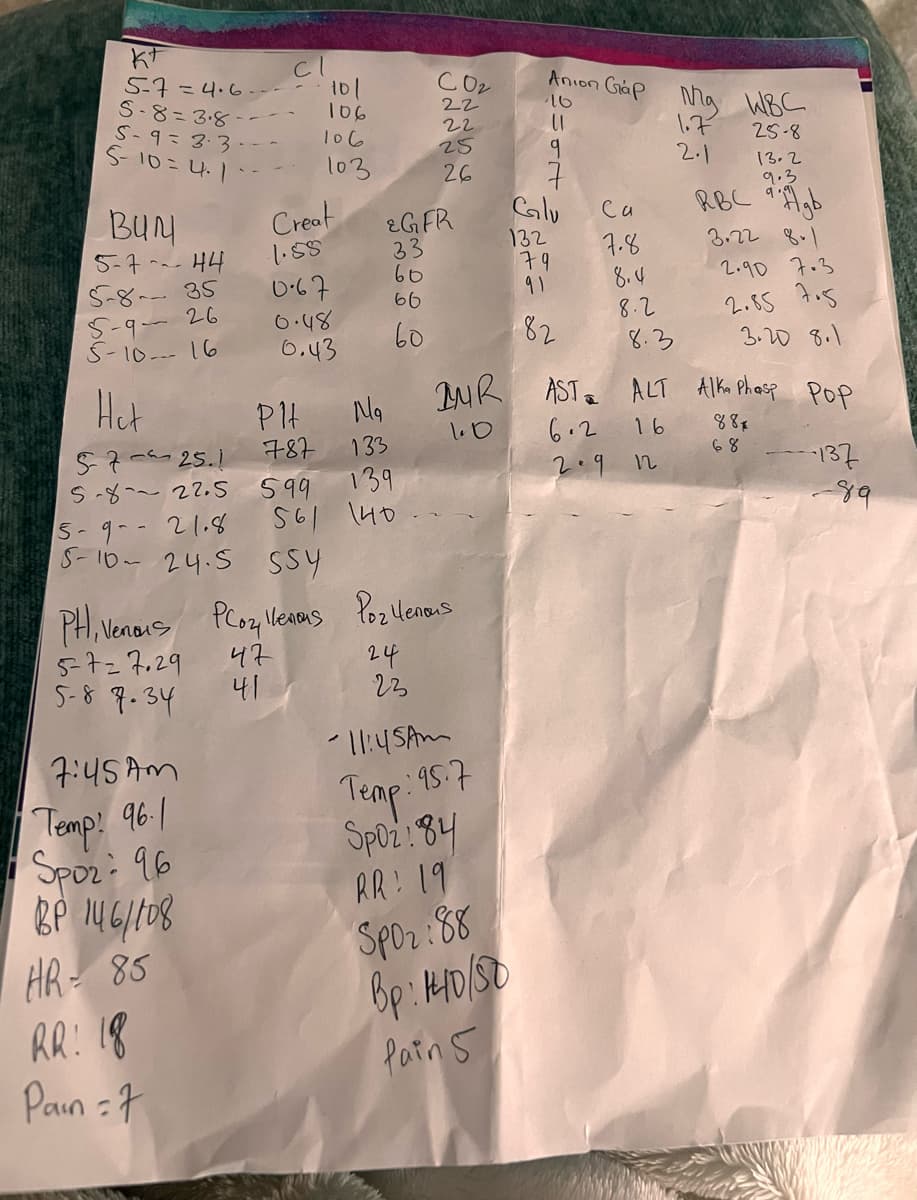 K+ Cl CO2 Anion Gap Mg WBC
5-7 = 4.6 ---- 101 22 10 1.7 25.8
5-8 = 3.8 ---- 106 22 11 2.1 13.2
5-9 = 3.3 ---- 106 25 9 9.3
5-10 = 4.1 ---- 103 26 7
BUN Creat eGFR Glu Ca RBC Hgb
5-7 --- 44 1.58 33 132 7.8 3.22 8.1
5-8 --- 35 0.67 60 79 8.4 2.90 7.3
5-9 -- 26 0.48 60 91 8.2 2.85 7.5
5-10 --- 16 0.43 60 82 8.3 3.20 8.1
Hct Plt Na INR AST ALT Alka Phosp POP
5-7 --- 25.1 787 133 1.0 6.2 16 88 ----137
5-8 -- 22.5 599 139 2.9 12 68 -89
5-9 -- 21.8 561 140 ----
5-10 -- 24.5 554
PH, Venous PCo2, Venous Po2 Venous
5-7 = 7.29 47 24
5-8 7.34 41 23
7:45 Am
Temp: 96.1
Spo2: 96
BP 146/108
HR = 85
RR: 18
Pain = 7
- 11:45Am
Temp: 95.7
SpO2: 84
RR: 19
SpO2: 88
Bp: 140/80
Pain 5